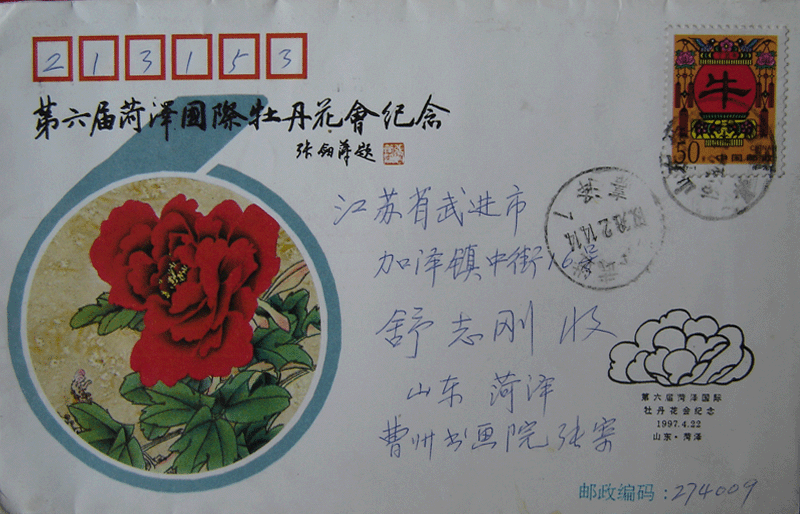 213153
第六届菏泽国際牡丹花會纪念
牛
50
中国邮政
江苏省武进市
加泽镇中街16号
舒志刚 收
山东 菏泽
曹州书画院 张
第六届菏泽国际
牡丹花会纪念
1997.4.22
山东·菏泽
邮政编码:274009